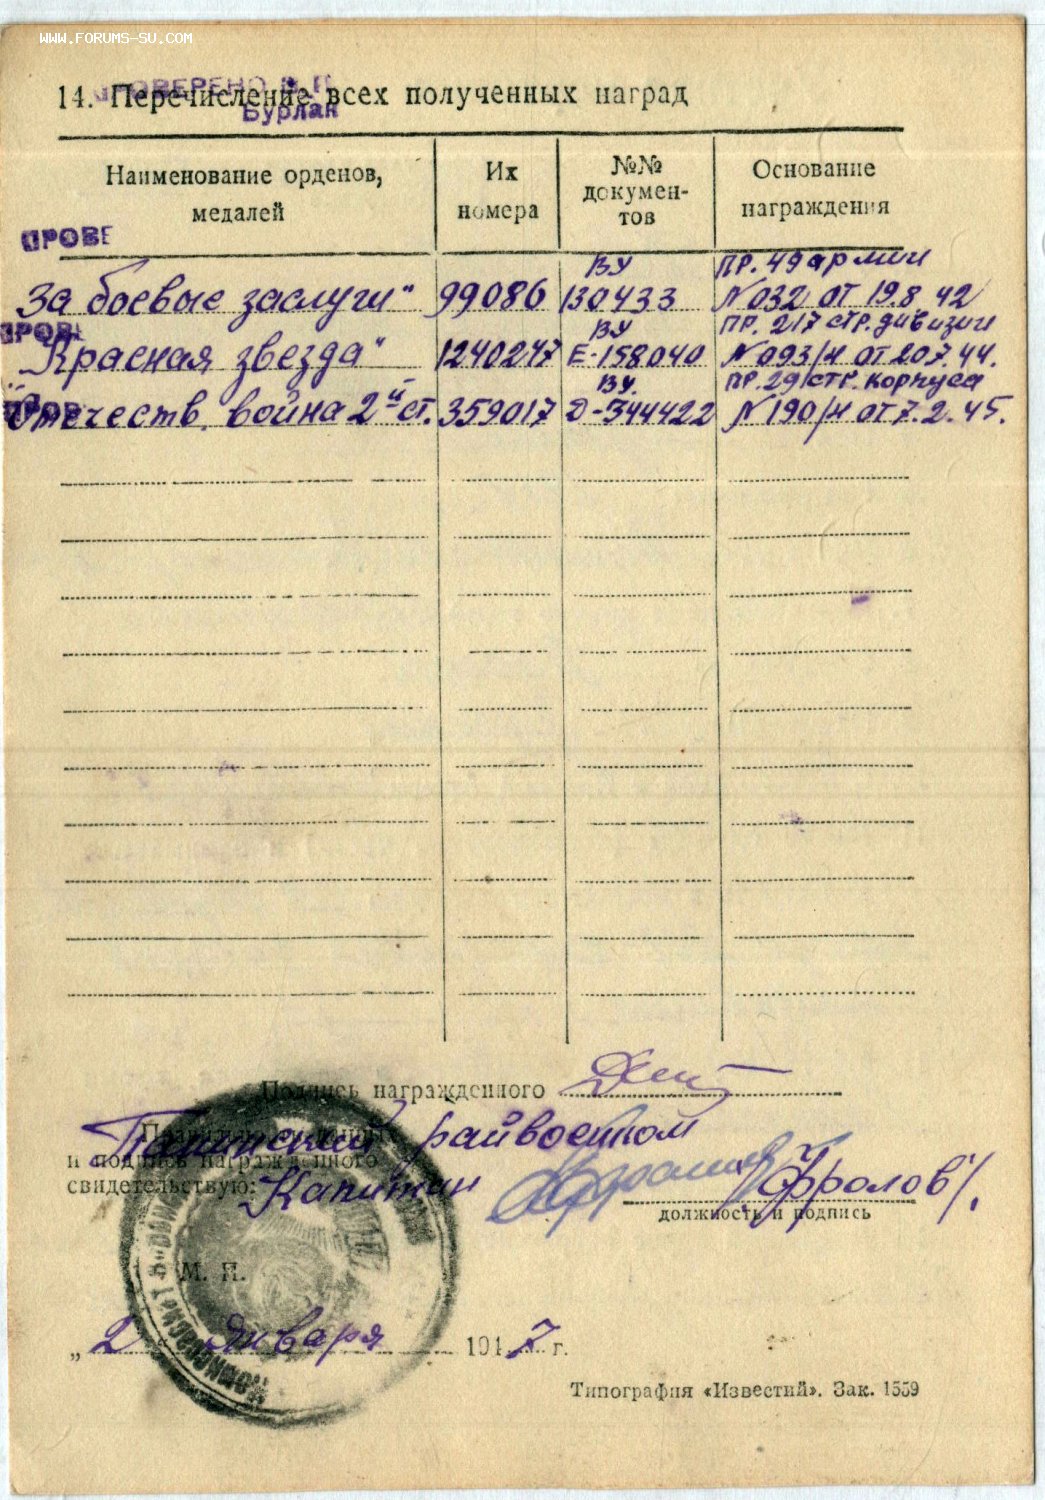 WWW.FORUMS-SU.COM
ПРОВЕРЕНО
14. Перечисление всех полученных наград
Бурлак
Наименование орденов, медалей
Их номера
№№ докумен-тов
Основание награждения
ПРОВЕ
ВУ
пр. 49 армии
За боевые заслуги"
99086
130433
N 032 от 19.8 42
ПРОВЕ
ВУ
пр. 217 стр. дивизии
"Красная звезда"
1240247
Е-158040
N 093/н от 20.7.44.
ПРОВ
ВУ.
пр. 29 стр. корпуса
"Отечеств. война 2й ст.
359017
Д-344422
N 190/н от 7.2.45.
Подпись награжденного
райвоенком
и подпись награжденного
свидетельствую:
Капитан
/Фролов/.
должность и подпись
М. П.
„2" Января 1947 г.
Типография «Известий». Зак. 1559